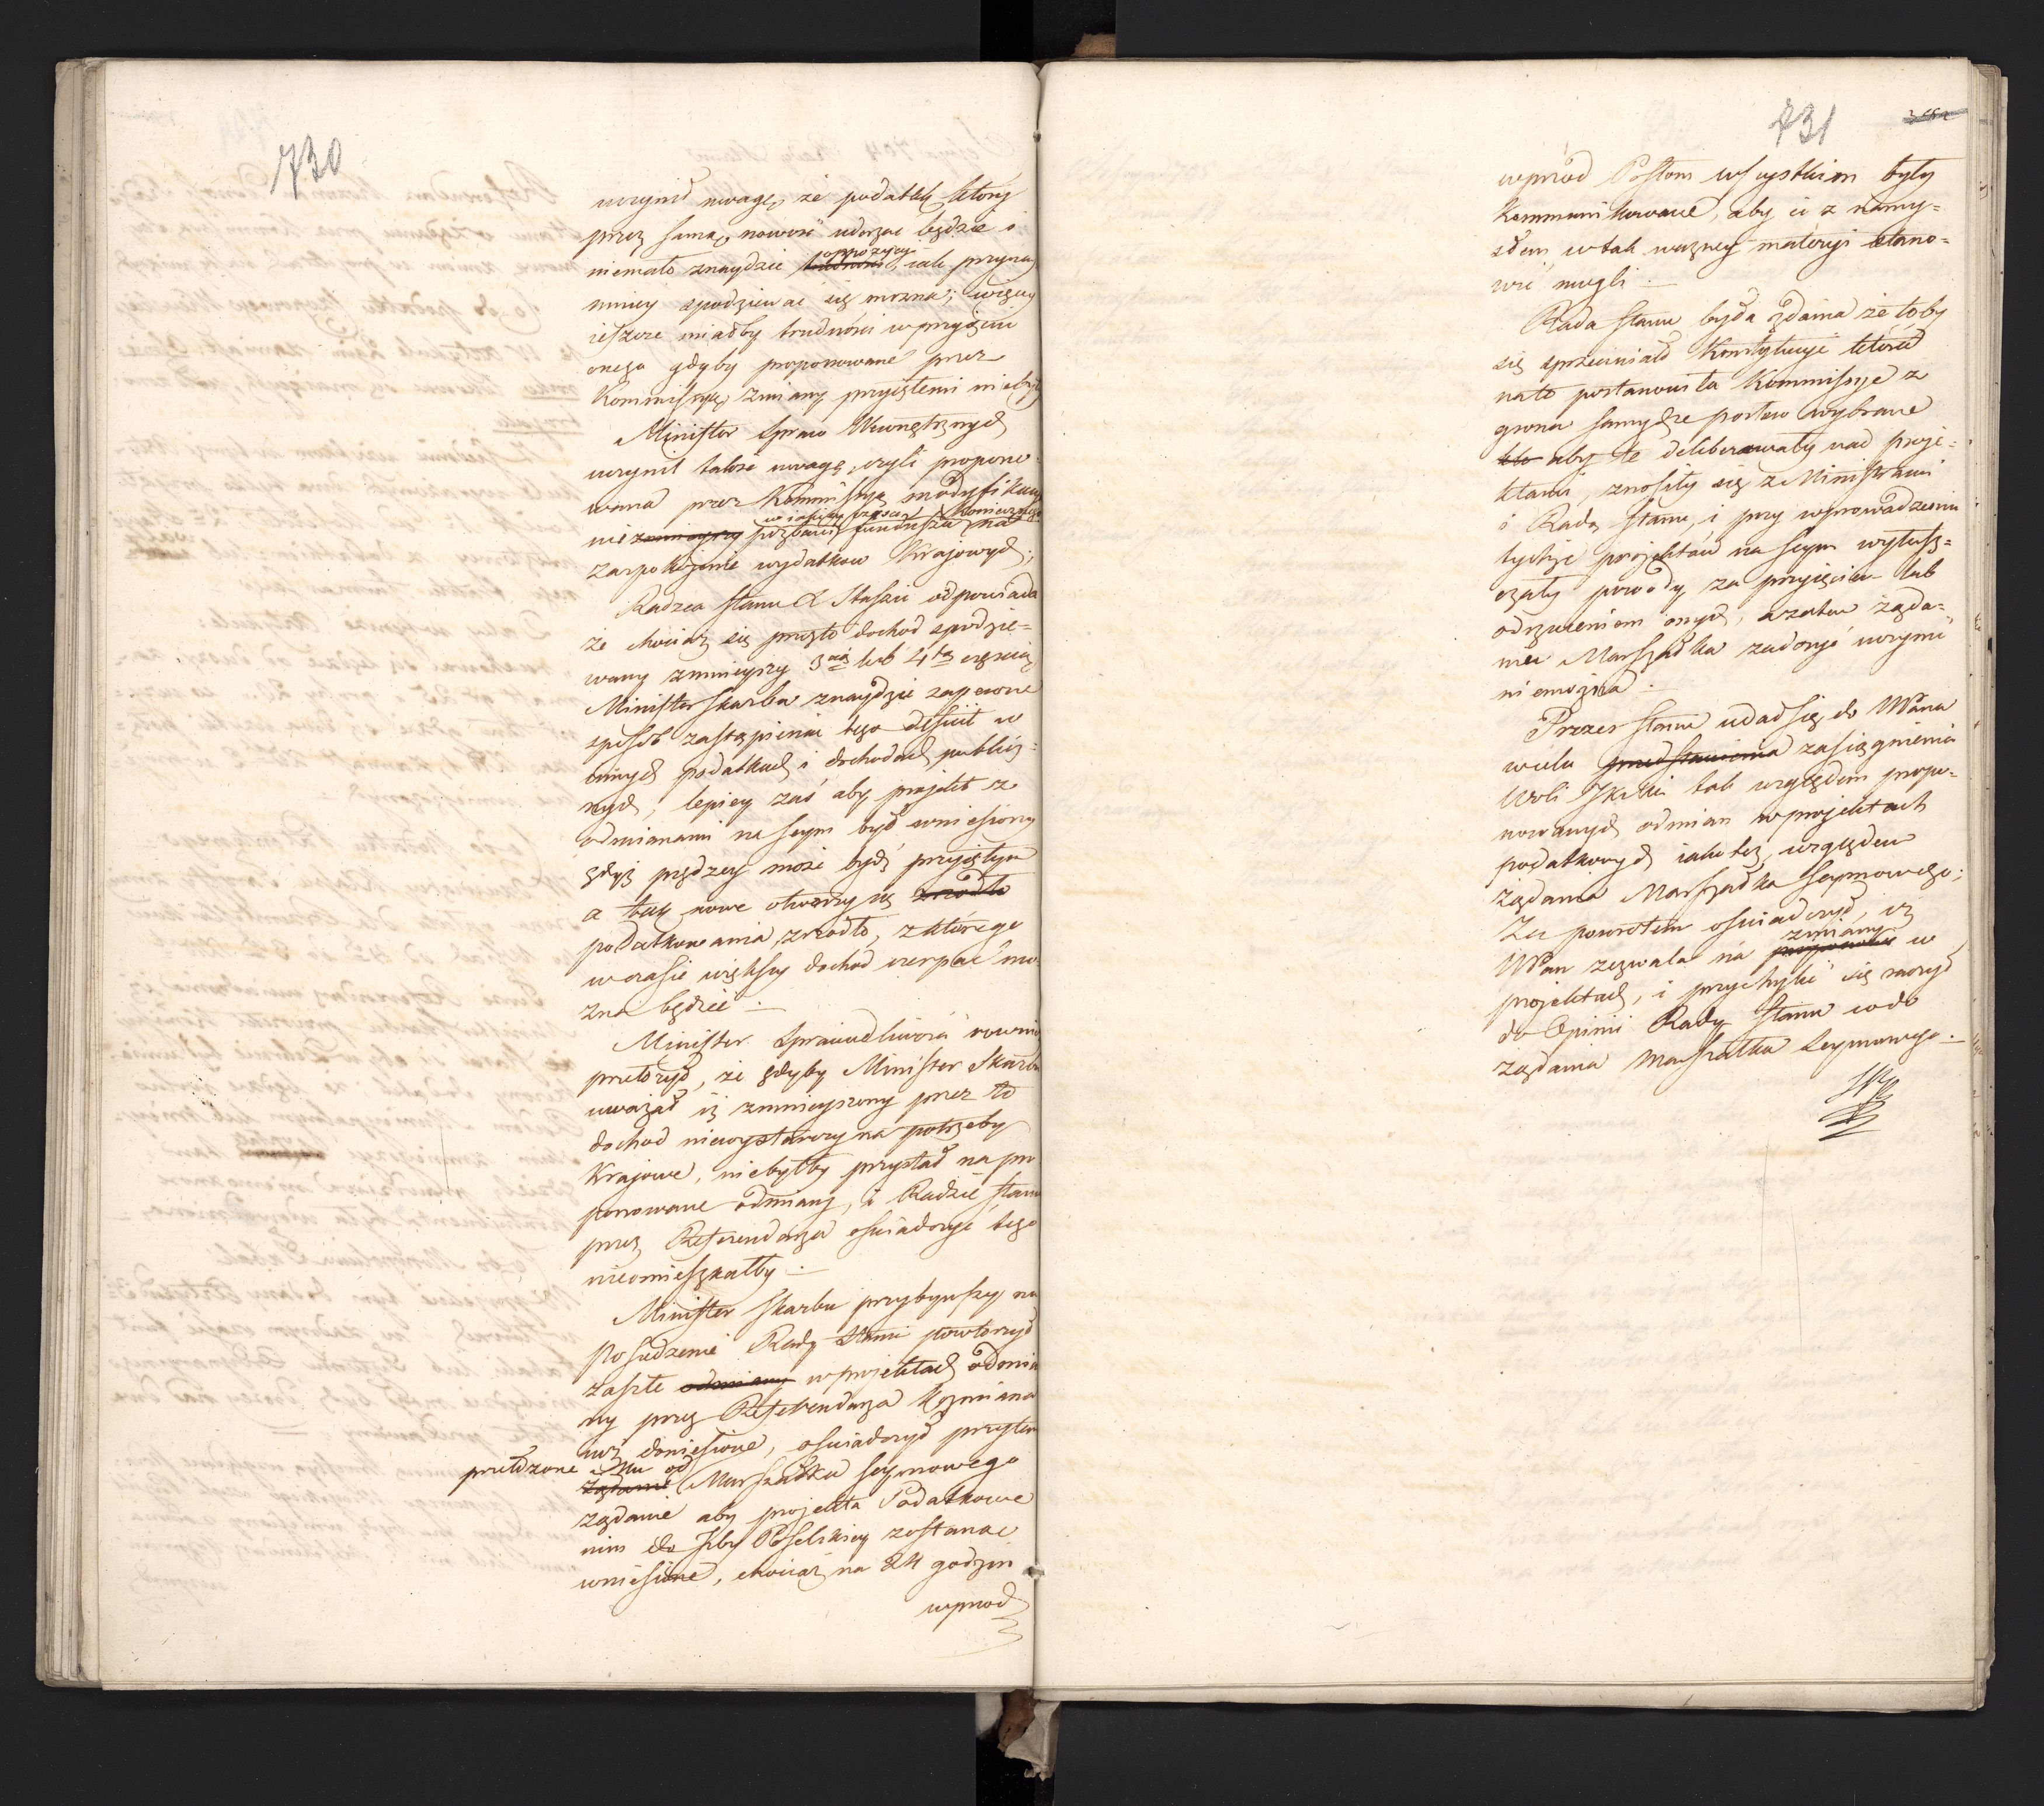 730
uczynił uwagę, że podatek który
przez samą nowość uderzać będzie i
niemało znaydzie trudności oppozycyi, iak przynay
mniey spodziewać się można; więcey
ieszcze miałby trudności w przyięciu
onego gdyby proponowane przez
Kommissyę zmiany przyiętemi niebyły
Minister Spraw Wewnętrznych
uczynił także uwagę, czyli propono-
wana przez Kommissyę modyfikacya
nie zmnieyszy w iakiey części koniecznego
funduszu na
zaspokojenie wydatkow Krajowych;
Radzca Stanu X Staszic odpowiada
że chociaż się przezto dochod spodzie-
wany zmnieyszy 3cią lub 4tą częścią
Minister Skarbu znaydzie zapewne
sposob zastąpienia tego deficit w
innych podatkach i dochodach publicz-
nych; lepiey zaś aby projekt z
odmianami na Seym był wniesiony
gdyż prędzey może bydź przyiętym
a tak nowe otworzy się zrodło
podatkowania, zrodło, z ktorego
w czasie większy dochod czerpać mo-
zna będzie.
Minister Sprawiedliwości rownie
przełożył, że gdyby Minister Skarbu
uważał iż zmnieyszony przez to
dochod niewystarczy na potrzeby
Krajowe, niebyłby przystał na pro
ponowane odmiany, i Radzie Stanu
przez Referendarza oświadczyć tego
nieomieszkałby.
Minister Skarbu przybywszy na
Posiedzenie Rady Stanu powtorzył
zaszłe odmiany w projektach odmia
ny przez Referendarza Kozmiana
iuż doniesione, oświadczył przytem
przełożone żądanie Mu od Marszałka Seymowego
ządanie aby projekta Podatkowe
nim do Izby Poselskiey zostaną
wniesione, chociaż na 24 godzin
wprzod
731
wprzód Posłom wszystkim były
Kommunikowane, aby ci z namy-
słem w tak ważney materyi stano-
wić mogli.
Rada Stanu była zdania że to by
się sprzeciwiało Konstytucyi która
na to postanowiła Kommissye z
grona samychże posłow wybrane
aby te deliberowały nad proje-
ktami, znosiły się z Ministrami
i Radą Stanu, i przy wprowadzeniu
tychże projektów na Seym wyłusz-
czały powody za przyięciem lub
odrzuceniem onych, a zatem żąda-
niu Marszałka zadosyć uczynić
niemożna.
Prezes Stanu udał się do NPana
w celu przedstawienia zasiągnienia
Woli Jego tak względem propo-
nowanych odmian w projektach
podatkowych iako też względem
żądania Marszałka Seymowego;
Za powrotem oświadczył, iż
NPan zezwala na zmiany w
projektach, i przychylić się raczył
do Opinii Rady Stanu co do
ządania Marszałka Seymowego.